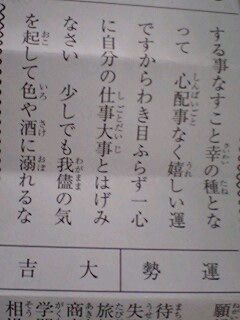 する事なすこと幸の種とな
って 心配事なく嬉しい運
ですからわき目ふらず一心
に自分の仕事大事とはげみ
なさい 少しでも我儘の気
を起して色や酒に溺れるな
運勢
大吉
願
待
失
旅
商
学
相